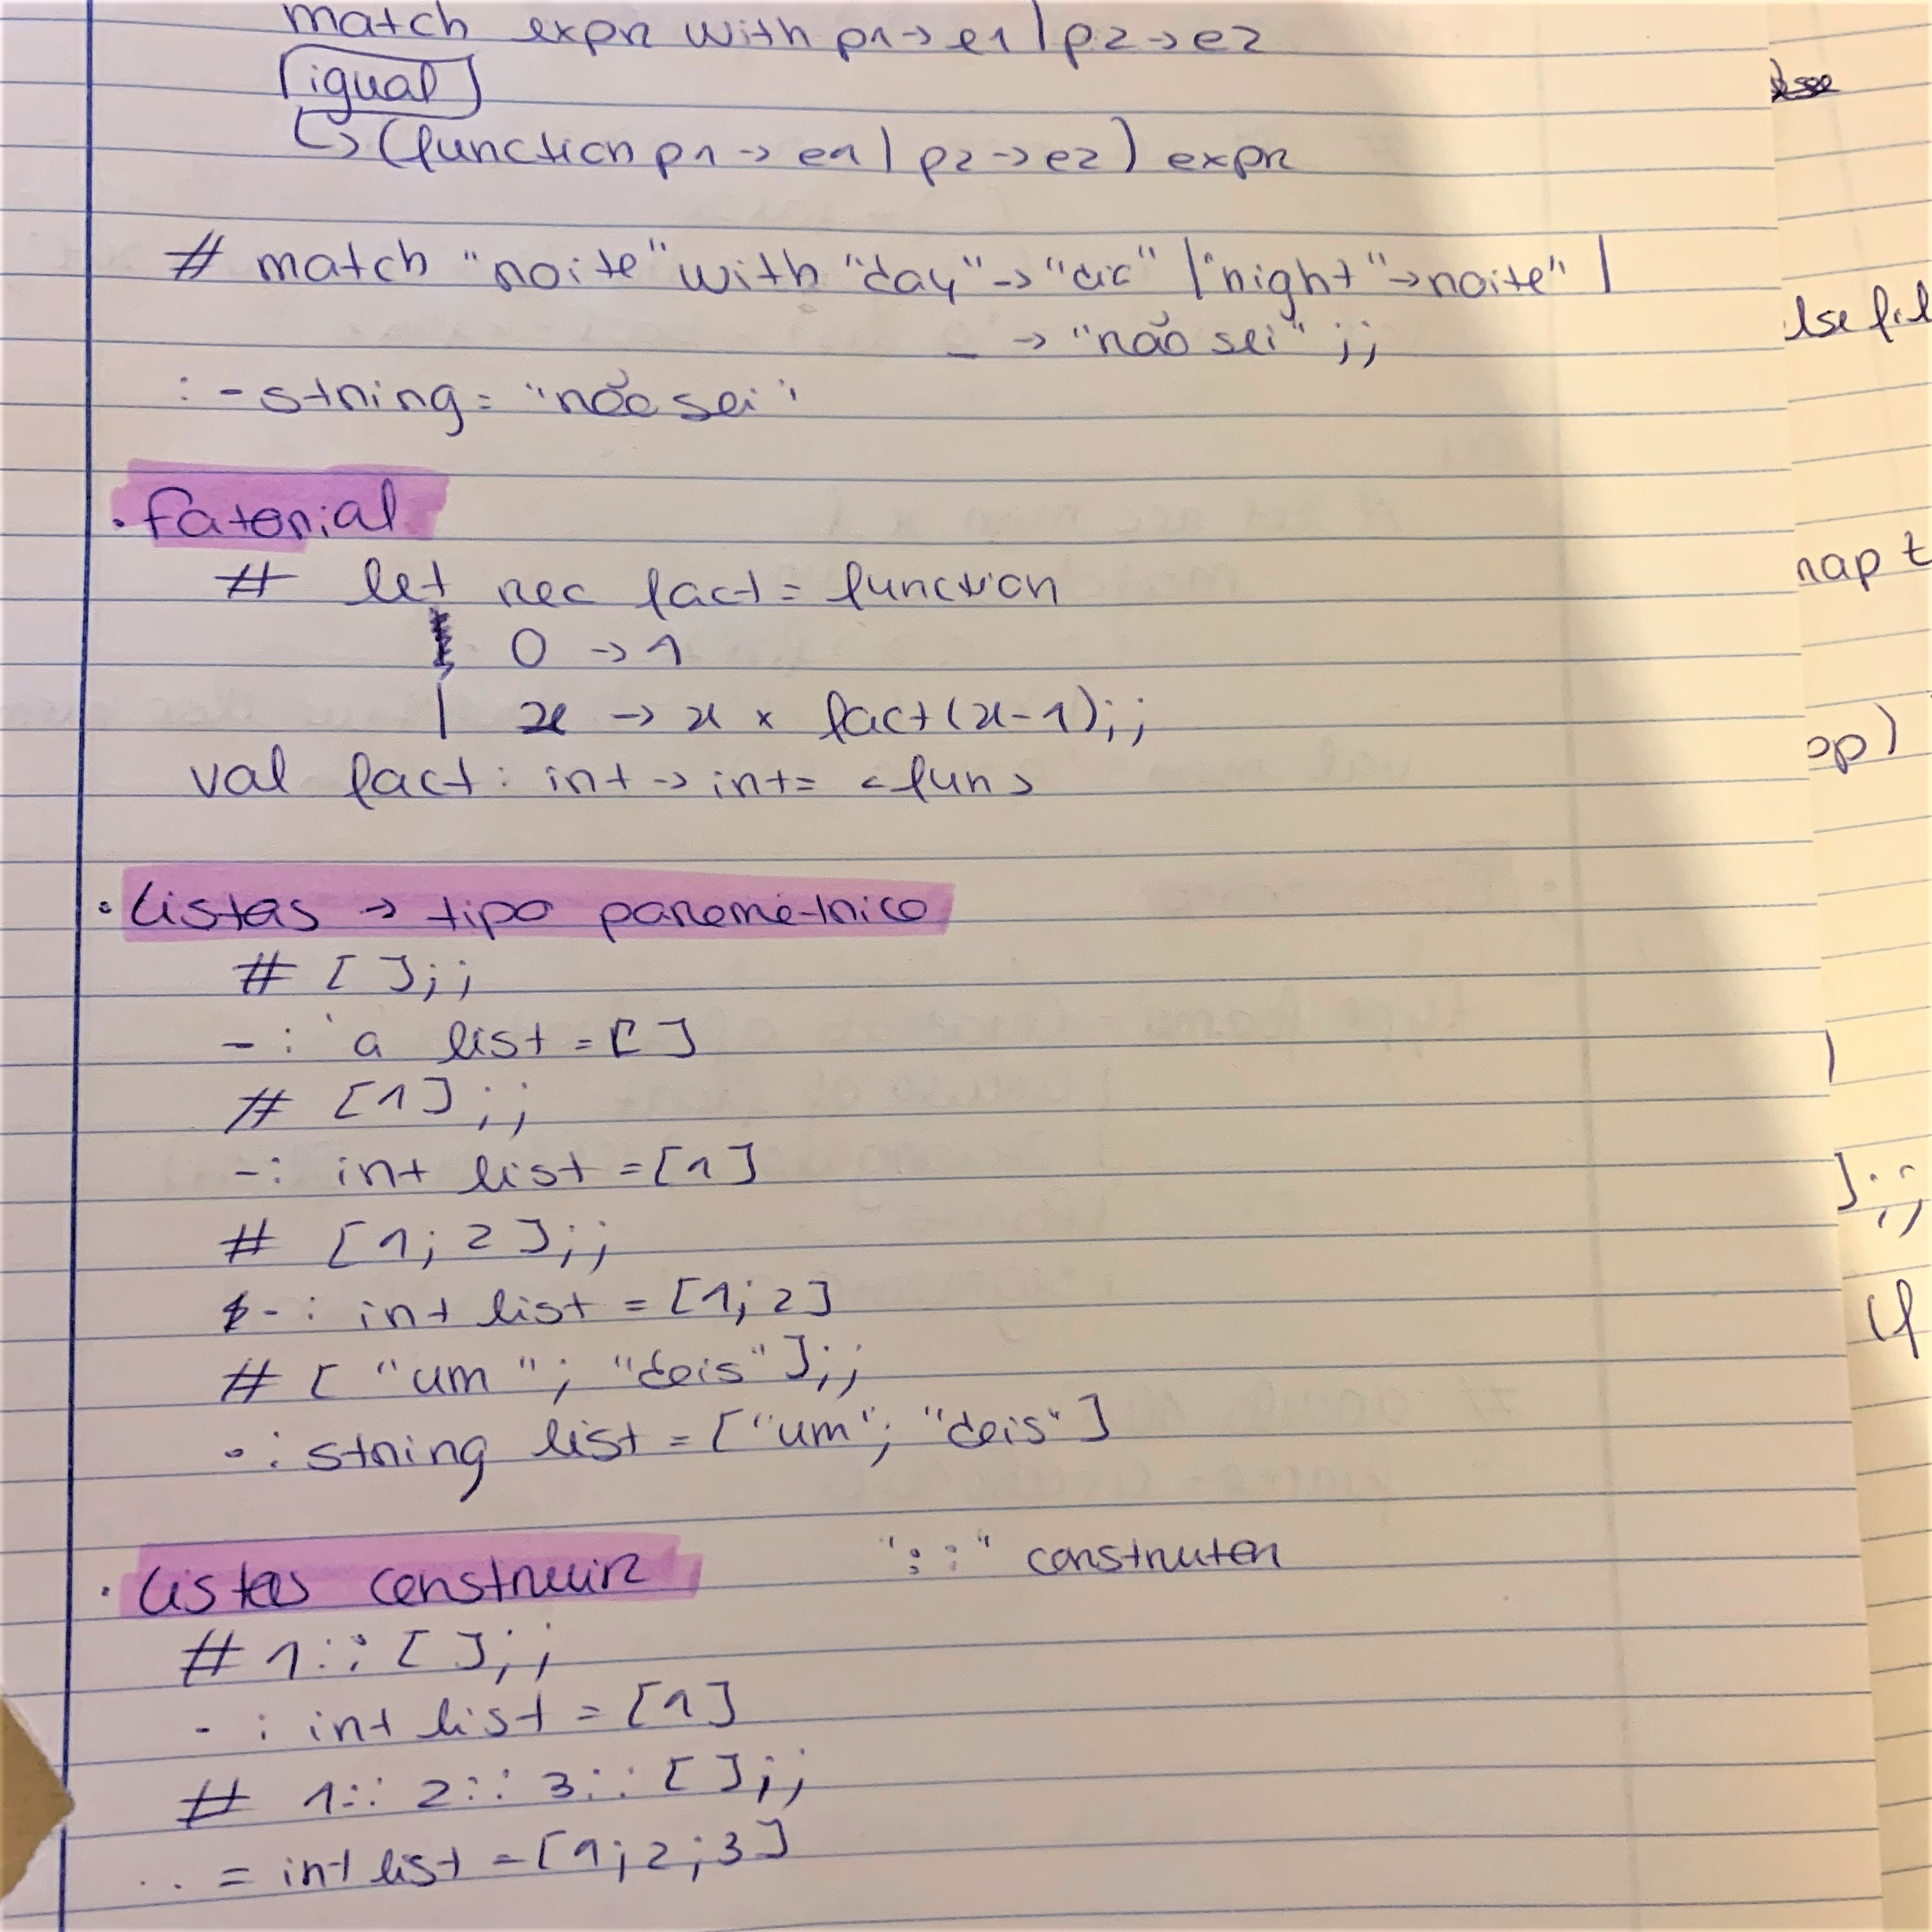 match expr with p1 -> e1 | p2 -> e2
igual
↳ (function p1 -> e1 | p2 -> e2) expr
# match "noite" with "day" -> "dia" | "night" -> noite" |
_ -> "não sei" ;;
: - string = "não sei"
• fatorial
# let rec fact = function
| 0 -> 1
| x -> x × fact(x-1);;
val fact : int -> int = <fun>
• Listas → tipo paramétrico
# [ ];;
- : 'a list = [ ]
# [1];;
- : int list = [1]
# [1; 2];;
- : int list = [1; 2]
# [ "um"; "dois" ];;
- : string list = ["um"; "dois"]
• Listas construir "::" construtor
# 1::[ ];;
- : int list = [1]
# 1::2::3::[ ];;
.. = int list = [1; 2; 3]
lse fil
map t
op)
];;
if